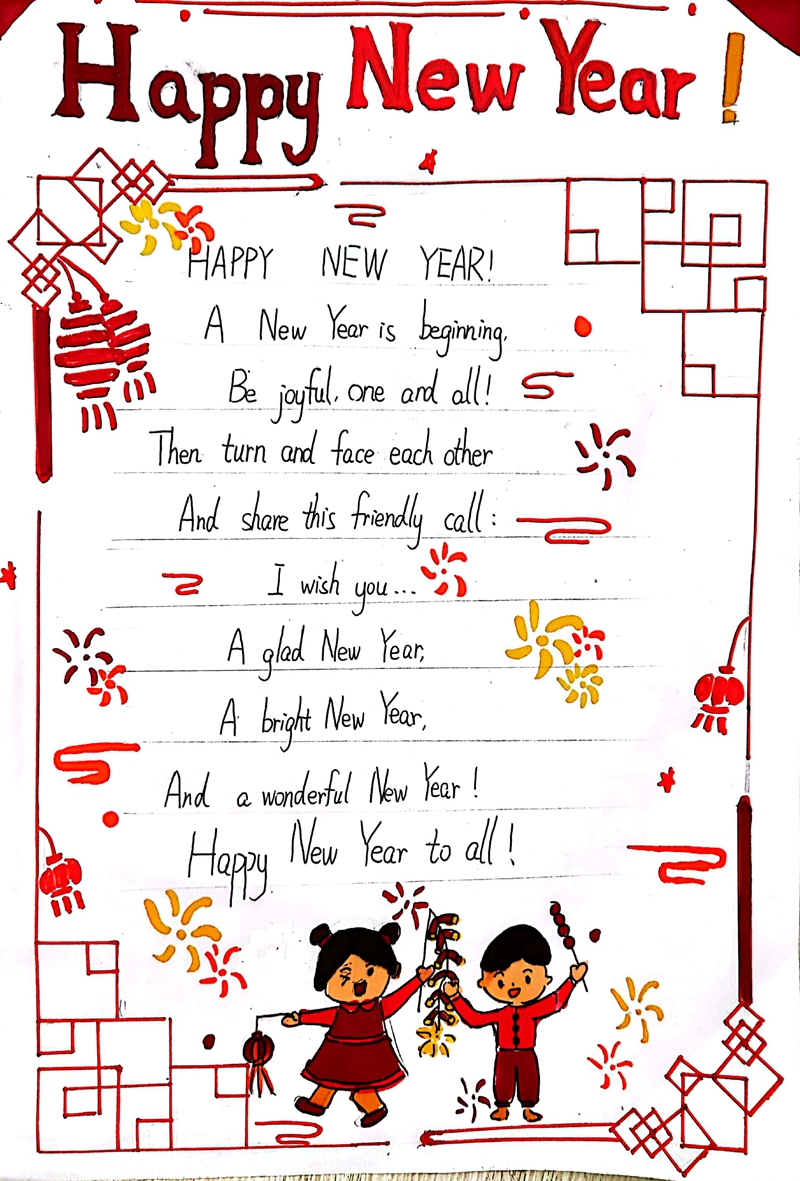 Happy New Year!
HAPPY NEW YEAR!
A New Year is beginning,
Be joyful, one and all!
Then turn and face each other
And share this friendly call:
I wish you...
A glad New Year,
A bright New Year,
And a wonderful New Year!
Happy New Year to all!